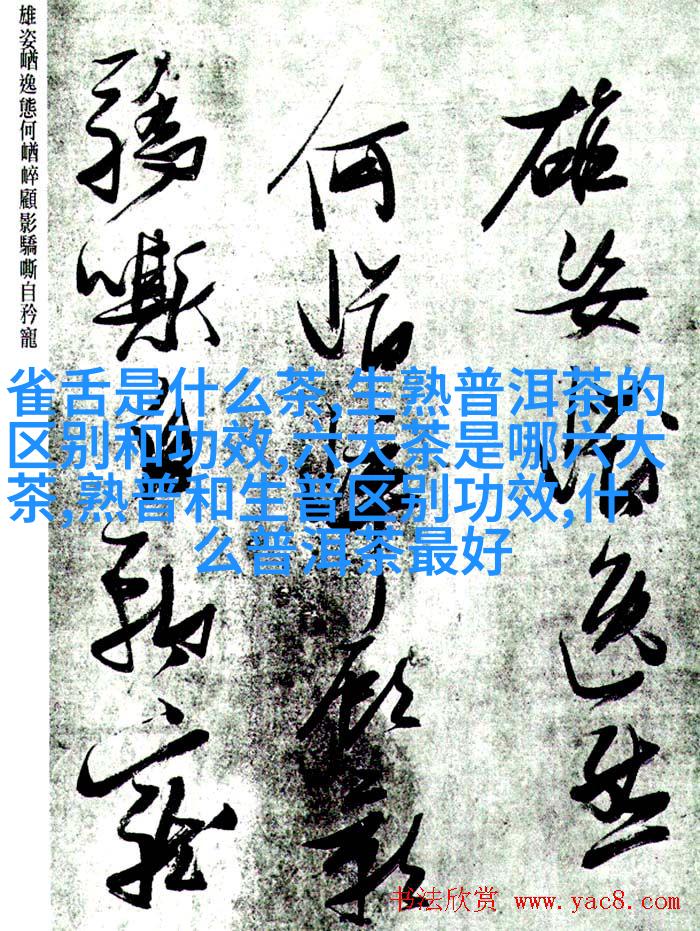 雄姿崷逸態何崷崒顧影驕嘶自矜寵
雄姿逸態
何崷崒顧影
驕嘶自矜寵
雀舌是什么茶,生熟普洱茶的
区别和功效,六大茶是哪六大
茶,熟普和生普区别功效,什
么普洱茶最好
书法欣赏 www.yac8.com